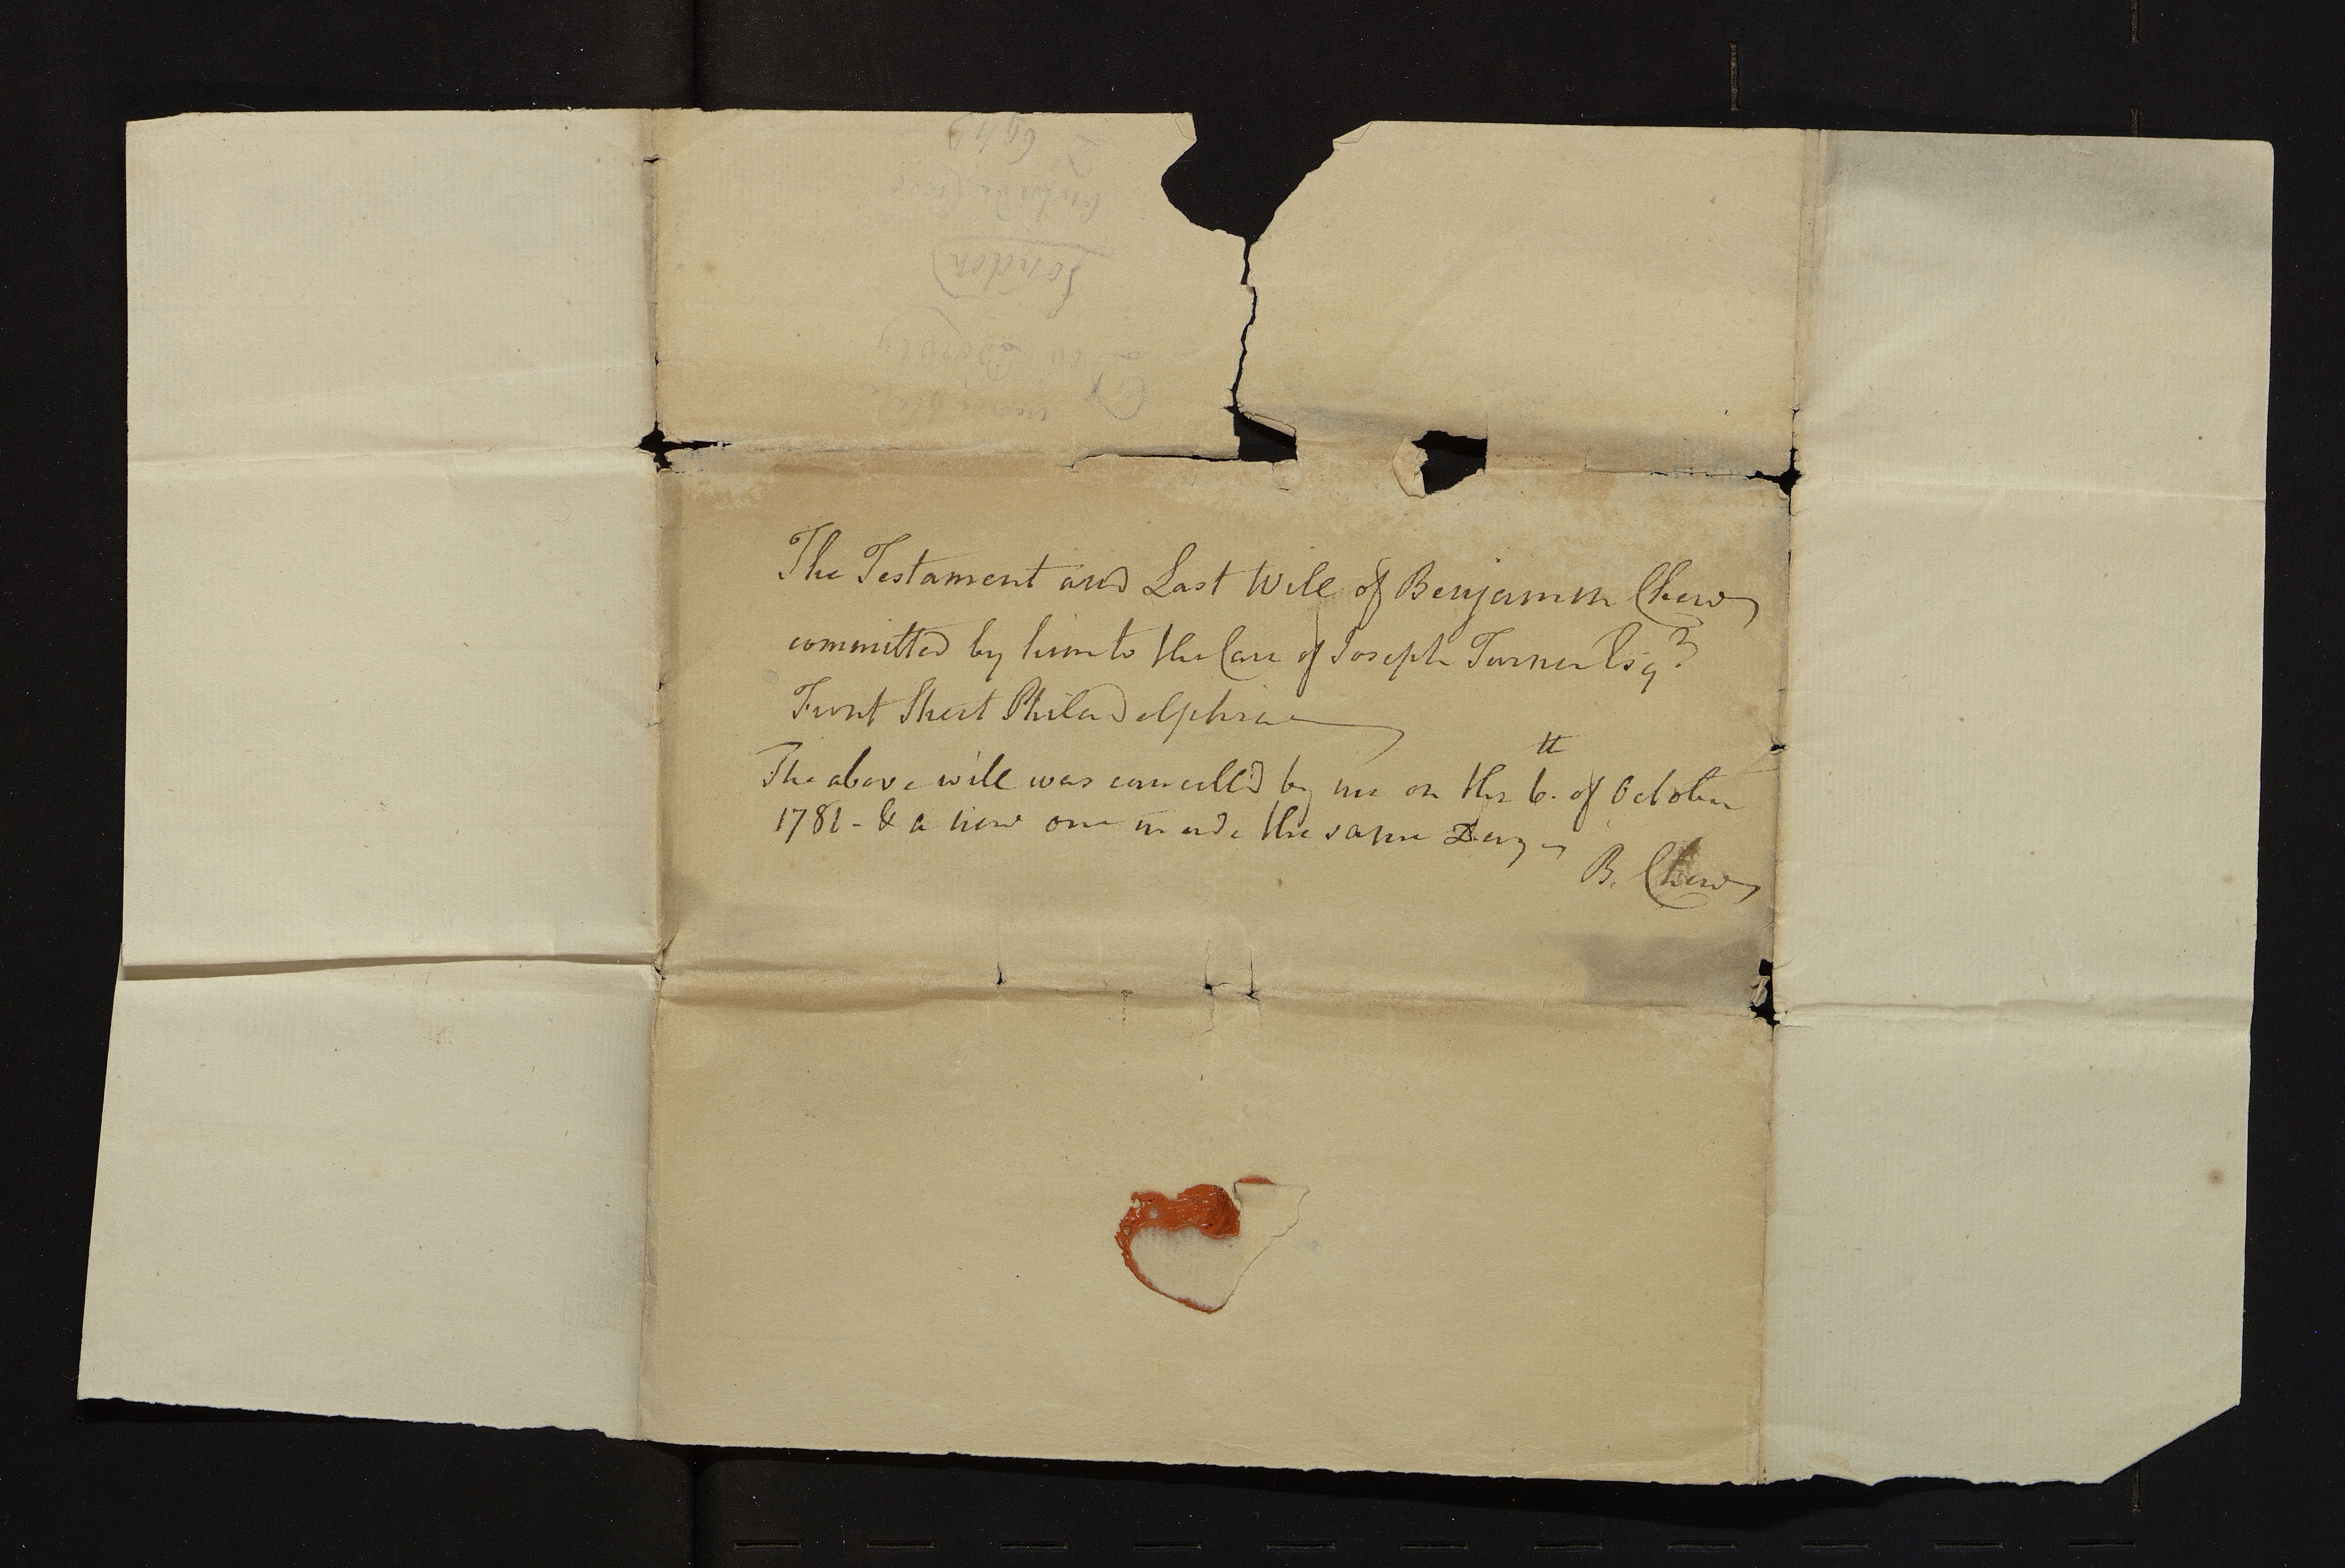 The Testament and Last Will of Benjamin Chew
committed by him to the Care of Joseph Turner Esqr
Front Street Philadelphia
The above will was cancell'd by me on the 6.th of October
1781 - & a new one made the same Day
B. Chew
London